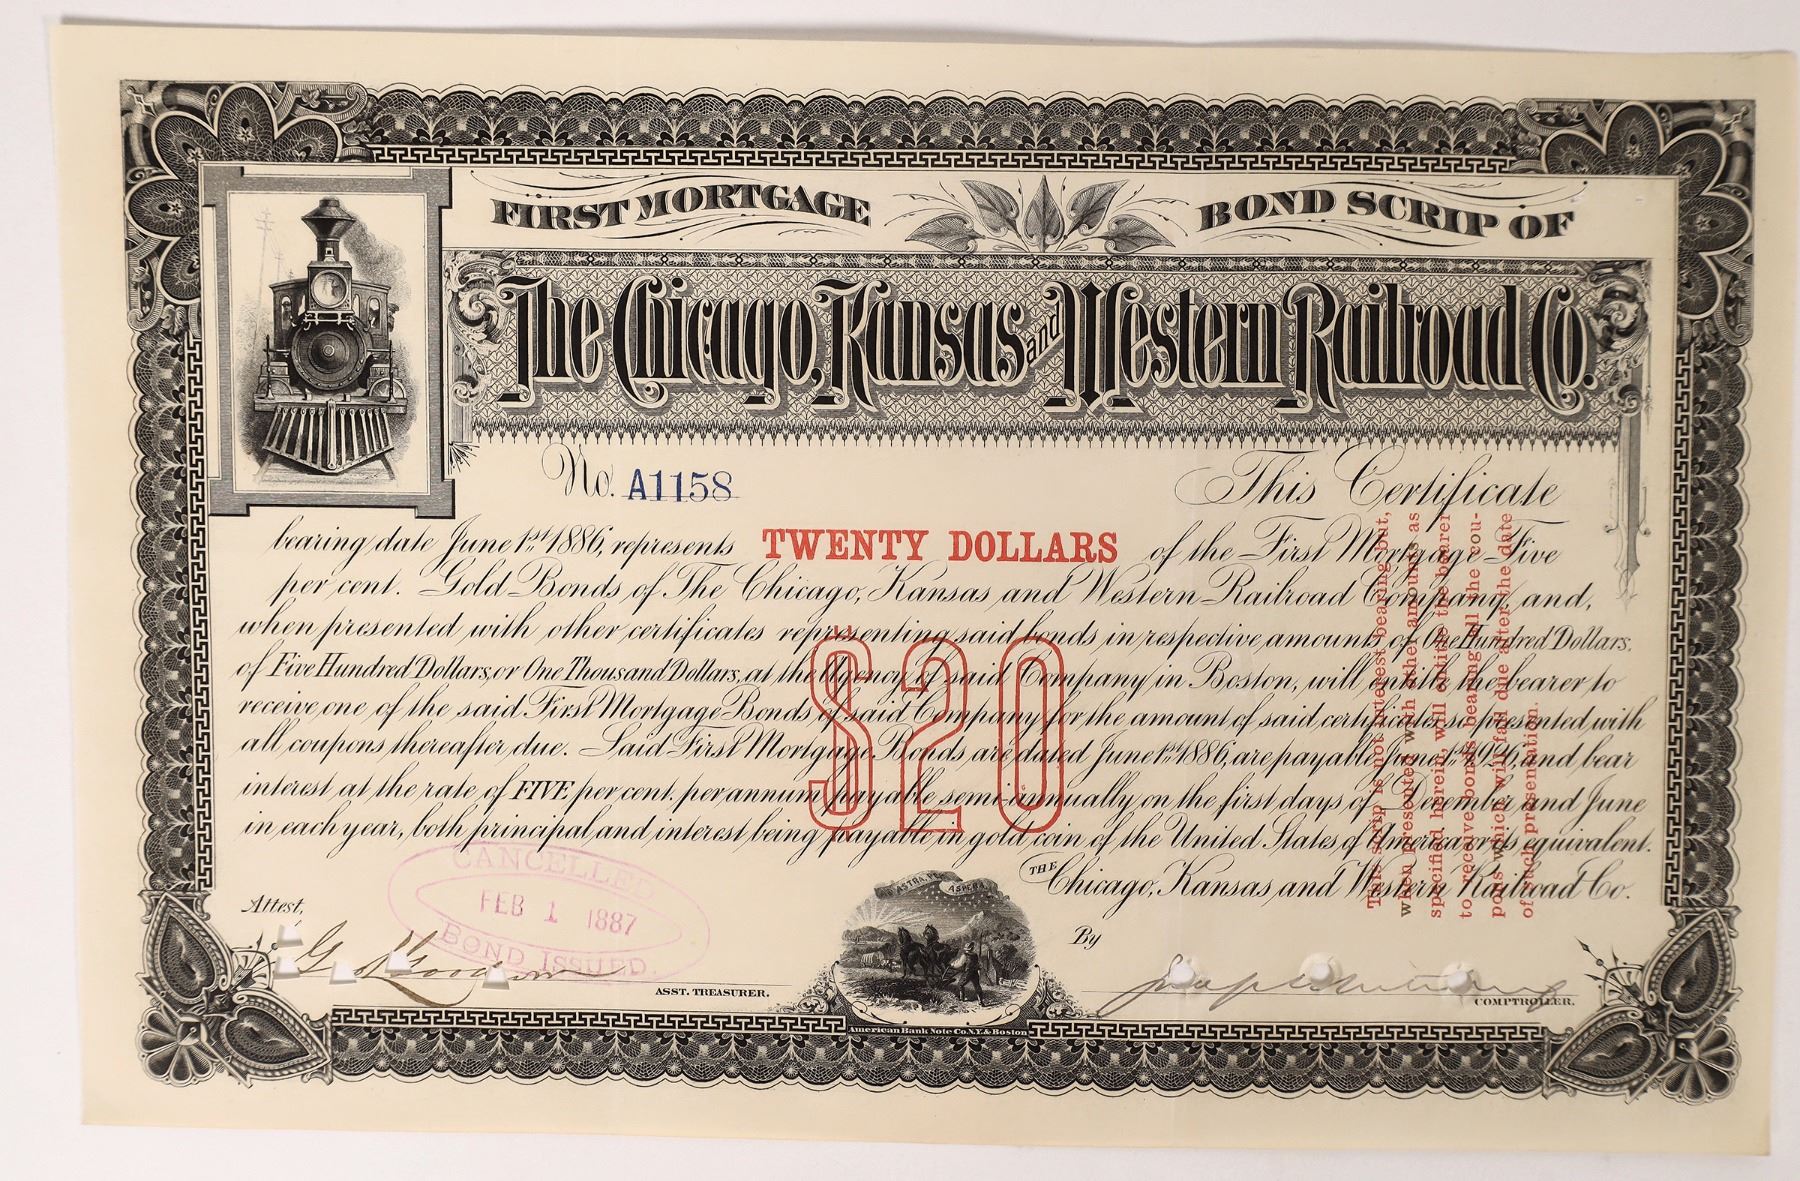 FIRST MORTGAGE BOND SCRIP OF
The Chicago, Kansas and Western Railroad Co.
No. A1158
This Certificate
bearing date June 1st 1886, represents TWENTY DOLLARS of the First Mortgage Five
per cent. Gold Bonds of The Chicago, Kansas and Western Railroad Company, and,
when presented with other certificates representing said bonds in respective amounts of One Hundred Dollars,
of Five Hundred Dollars, or One Thousand Dollars, at the Agency of said Company in Boston, will entitle the bearer to
receive one of the said First Mortgage Bonds of said Company for the amount of said certificates so presented with
all coupons thereafter due. Said First Mortgage Bonds are dated June 1st 1886, are payable June 1st 1926, and bear
interest at the rate of FIVE per cent. per annum payable semi-annually on the first days of December and June
in each year, both principal and interest being payable in gold coin of the United States of America or its equivalent.
$20
This scrip is not interest bearing but,
when presented with other amounts as
specified herein, will entitle the bearer
to receive bonds bearing all the cou-
pons which will fall due after the date
of such presentation.
THE Chicago, Kansas and Western Railroad Co.
CANCELLED
FEB 1 1887
BOND ISSUED.
Attest,
ASST. TREASURER.
AD ASTRA PER ASPERA
By
COMPTROLLER.
American Bank Note Co. N.Y. & Boston